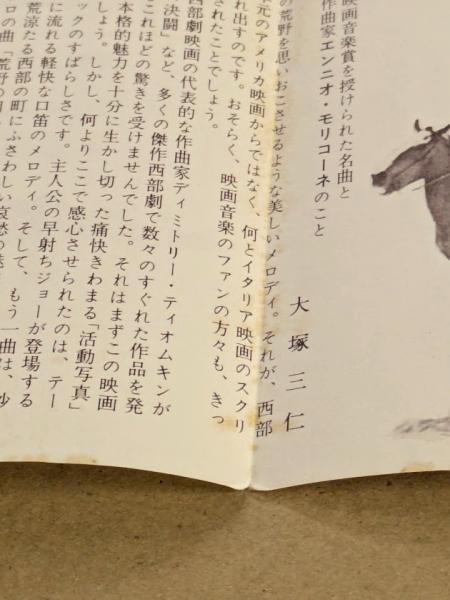 映画音楽賞を授けられた名曲と
作曲家エンニオ・モリコーネのこと
大塚三仁
の荒野を思いおこさせるような美しいメロディ。それが、西部
元のアメリカ映画からではなく、何とイタリア映画のスクリ
れ出すのです。おそらく、映画音楽のファンの方々も、きっ
されたことでしょう。
西部劇映画の代表的な作曲家ディミトリー・ティオムキンが
決闘」など、多くの傑作西部劇で数々のすぐれた作品を発
これほどの驚きを受けませんでした。それはまずこの映画
本格的魅力を十分に生かし切った痛快きわまる「活動写真」
しょう。しかし、何よりここで感心させられたのは、テー
ックのすばらしさです。主人公の早射ちジョーが登場する
に流れる軽快な口笛のメロディ。そして、もう一曲は、
荒涼たる西部の町にふさわしい哀愁の
ロの曲「荒野の